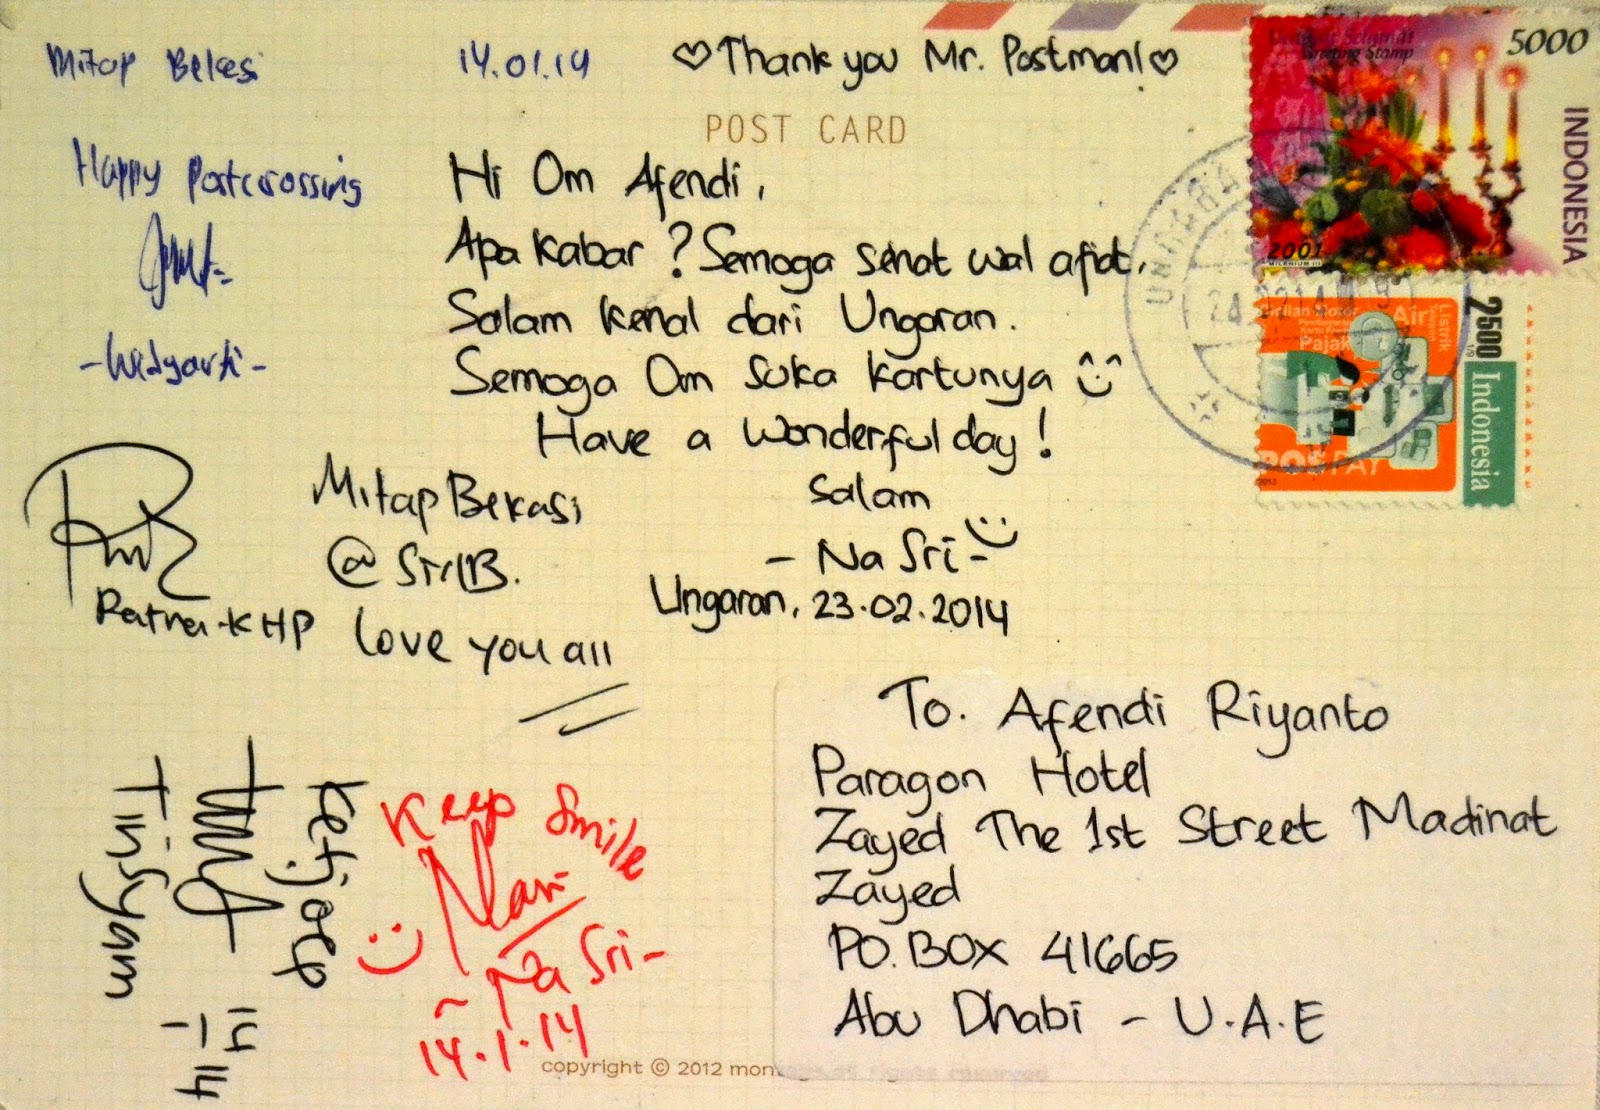 Mitap Bekasi
14.01.14
♡Thank you Mr. Postman!♡
POST CARD
Happy Postcrossing
-Widyarti-
Hi Om Afendi,
Apa Kabar? Semoga sehat wal afiat.
Salam kenal dari Ungaran.
Semoga Om suka kartunya
Have a wonderful day!
Salam
- Na Sri -
Ungaran, 23.02.2014
Mitap Bekasi
@
Love you all
Ratna-KHP
Keep Smile
Na Sri-
14.1.14
14
1
14
To. Afendi Riyanto
Paragon Hotel
Zayed The 1st Street Madinat
Zayed
PO.BOX 41665
Abu Dhabi - U.A.E
copyright © 2012
Greeting Stamp
5000
INDONESIA
2001
UNGARAN
Air
Listrik
Pajak
2500
Indonesia
POSPAY